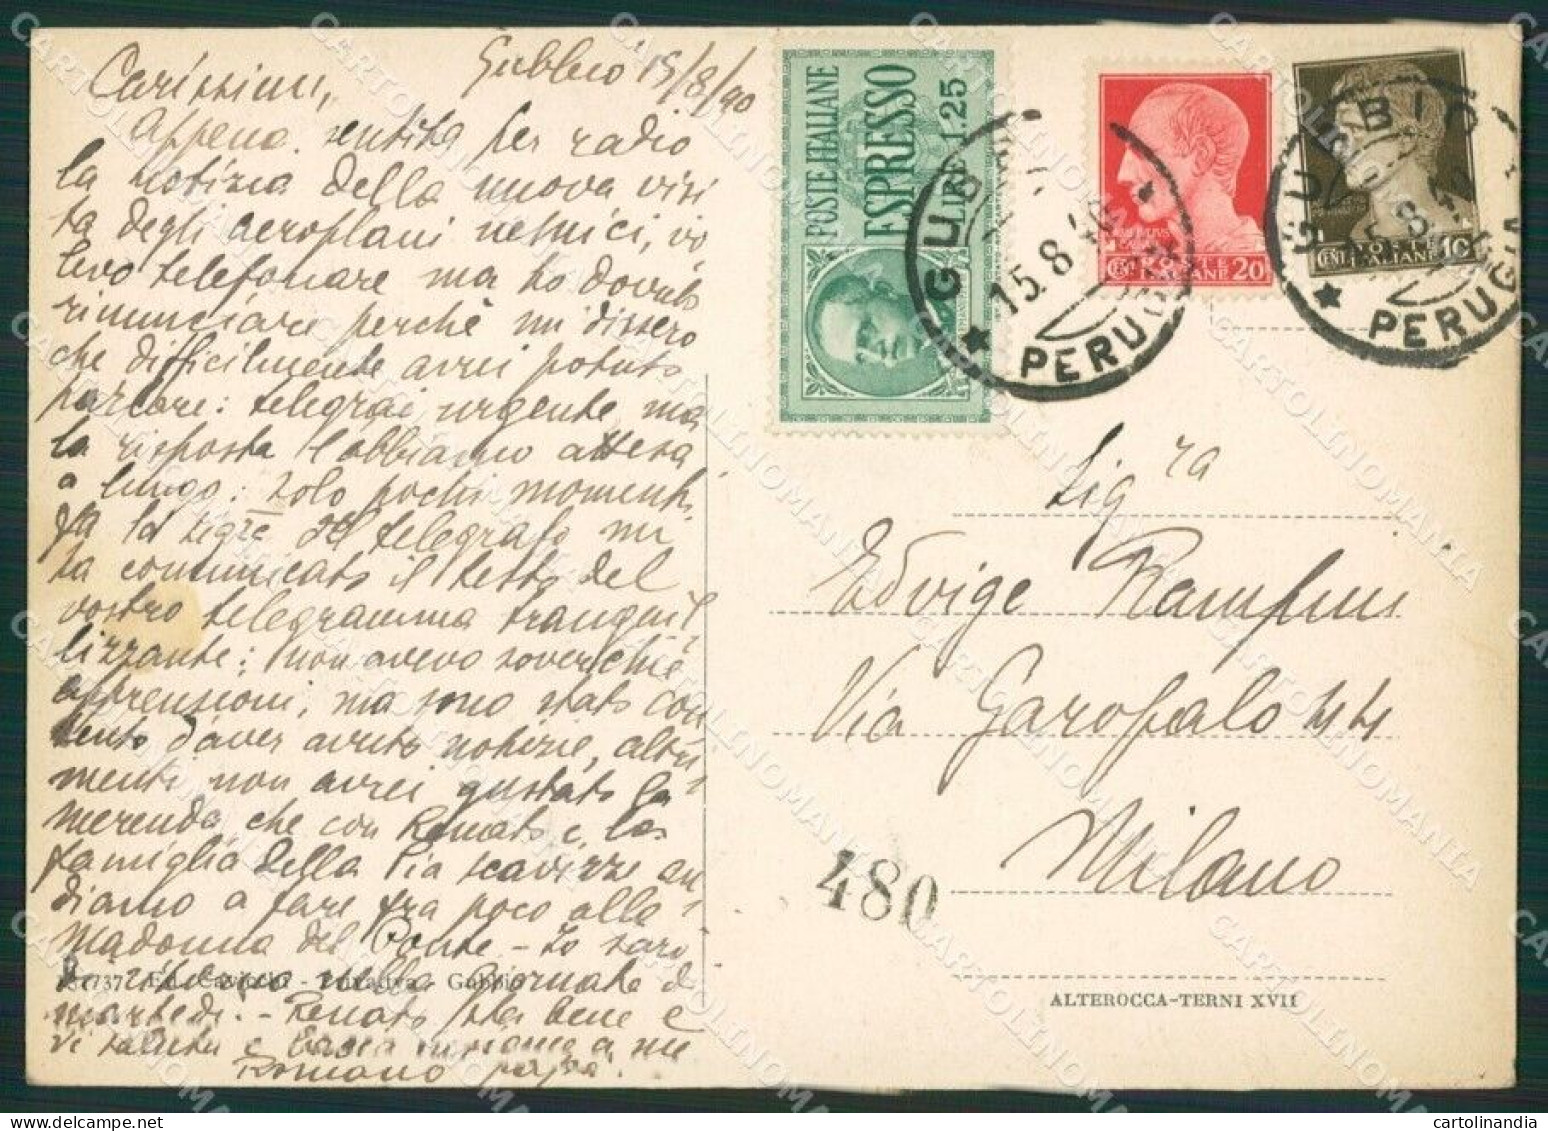 Gubbio 15/8/40
Carissimi,
appena sentita per radio
la notizia della nuova visi
ta degli aeroplani nemici, vo
levo telefonare ma ho dovuto
rinunciare perchè mi dissero
che difficilmente avrei potuto
parlare: telegrafai urgente, ma
la risposta l'abbiamo attesa
a lungo: solo pochi momenti
fa la sig.re del telegrafo mi
ha comunicato il testo del
vostro telegramma tranquil
lizzante: non avevo soverchie
apprensioni, ma sono stato con
tento d'aver avuto notizie, altri
menti non avrei gustato la
merenda che con Renato e la
famiglia della Pia Scavizzi an
diamo a fare fra poco alla
Madonna del Ponte - Io sarò
di ritorno nella giornata di
martedì. - Renato sta bene e
vi saluta e bacia insieme a me
Romano papà.
POSTE ITALIANE
ESPRESSO
LIRE 1.25
GUBBIO
15.8.40
PERUGIA
POSTE
ITALIANE
CENT 20
GUBBIO
15.8.40
PERUGIA
POSTE
ITALIANE
CENT 10
Sig.ra
Edvige Rampini
Via Garofalo 44
Milano
480
Gubbio
ALTEROCCA-TERNI XVII
CARTOLINOMANIA
cartolinandia